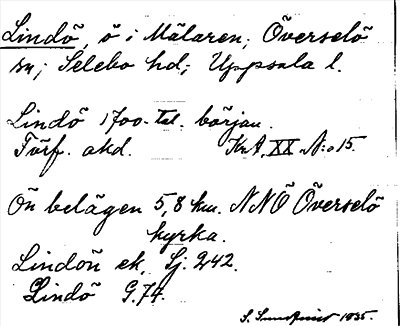 Lindö, ö i Mälaren; Överselö
sn; Selebo hd; Uppsala l.
Lindö 1700-tal. början.
Förf. okd. KrA. XX N:o 15.
Ön belägen 5,8 km. NNÖ Överselö
kyrka.
Lindön ek. Sj. 242.
Lindö G.74.
S. Sundquist 1935.